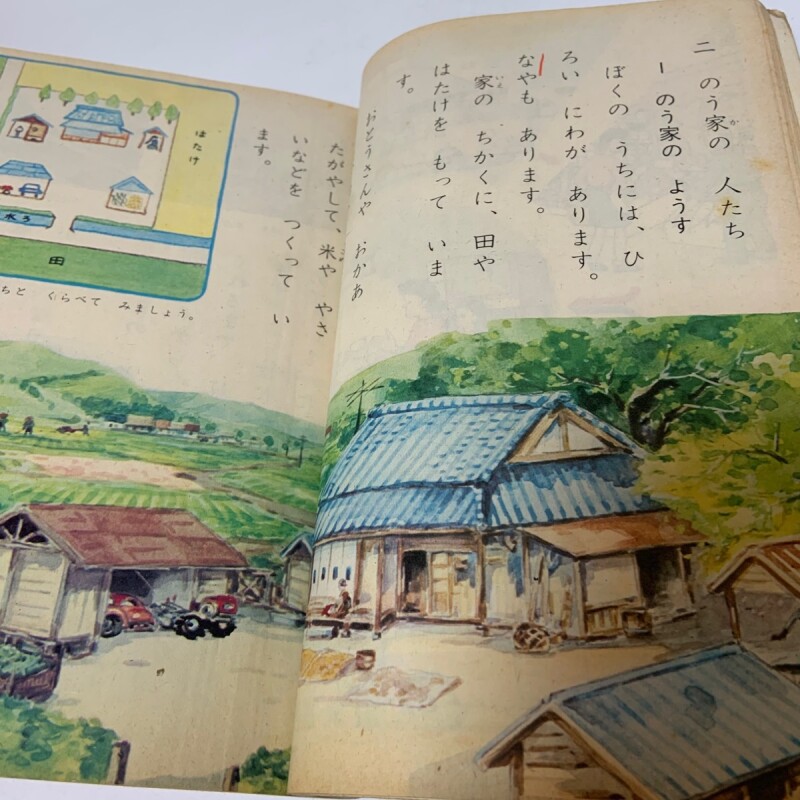 二 のう家の 人たち
1 のう家の ようす
ぼくの うちには、ひ
ろい にわが あります。
なやも あります。
家の ちかくに、田や
はたけを もって いま
す。
おとうさんや おかあ
たがやして、米や やさ
いなどを つくって い
ます。
はたけ
水ろ
田
ちと くらべて みましょう。